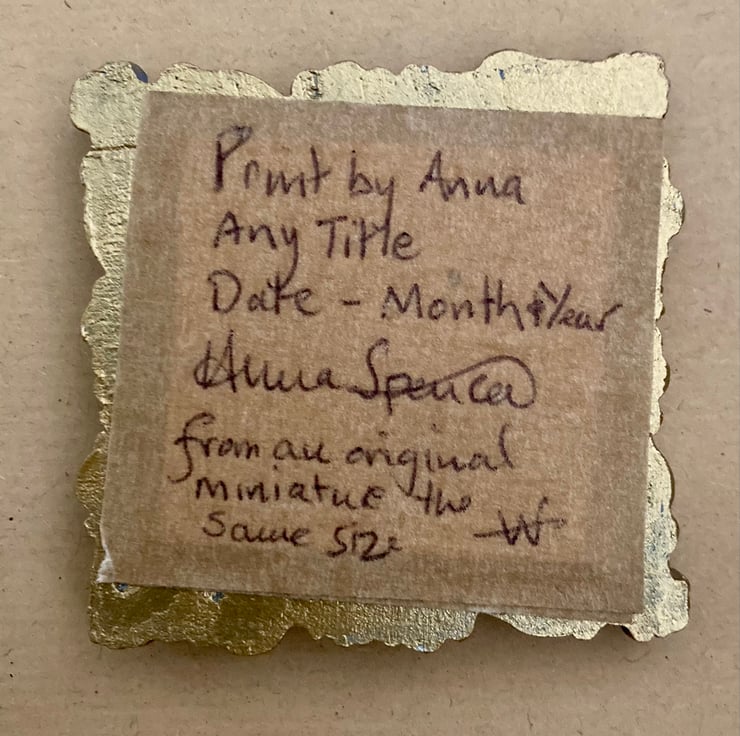 Print by Anna
Any Title
Date - Month & Year
Anna Spencer
from an original
miniature the
same size